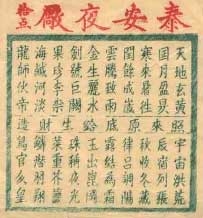 泰安夜廠
拾点
天地玄黃
日月盈昃
寒來暑往
閏餘成歲
雲騰致雨
金生麗水
劍號巨闕
果珍李柰
海鹹河淡
龍師伙帝
照來原路生財造
宇宙洪荒
辰宿列張
秋收冬藏
律呂調陽
露結為霜
玉出崑岡
珠稱夜光
菜重芥薑
鱗潛羽翔
鳥官人皇